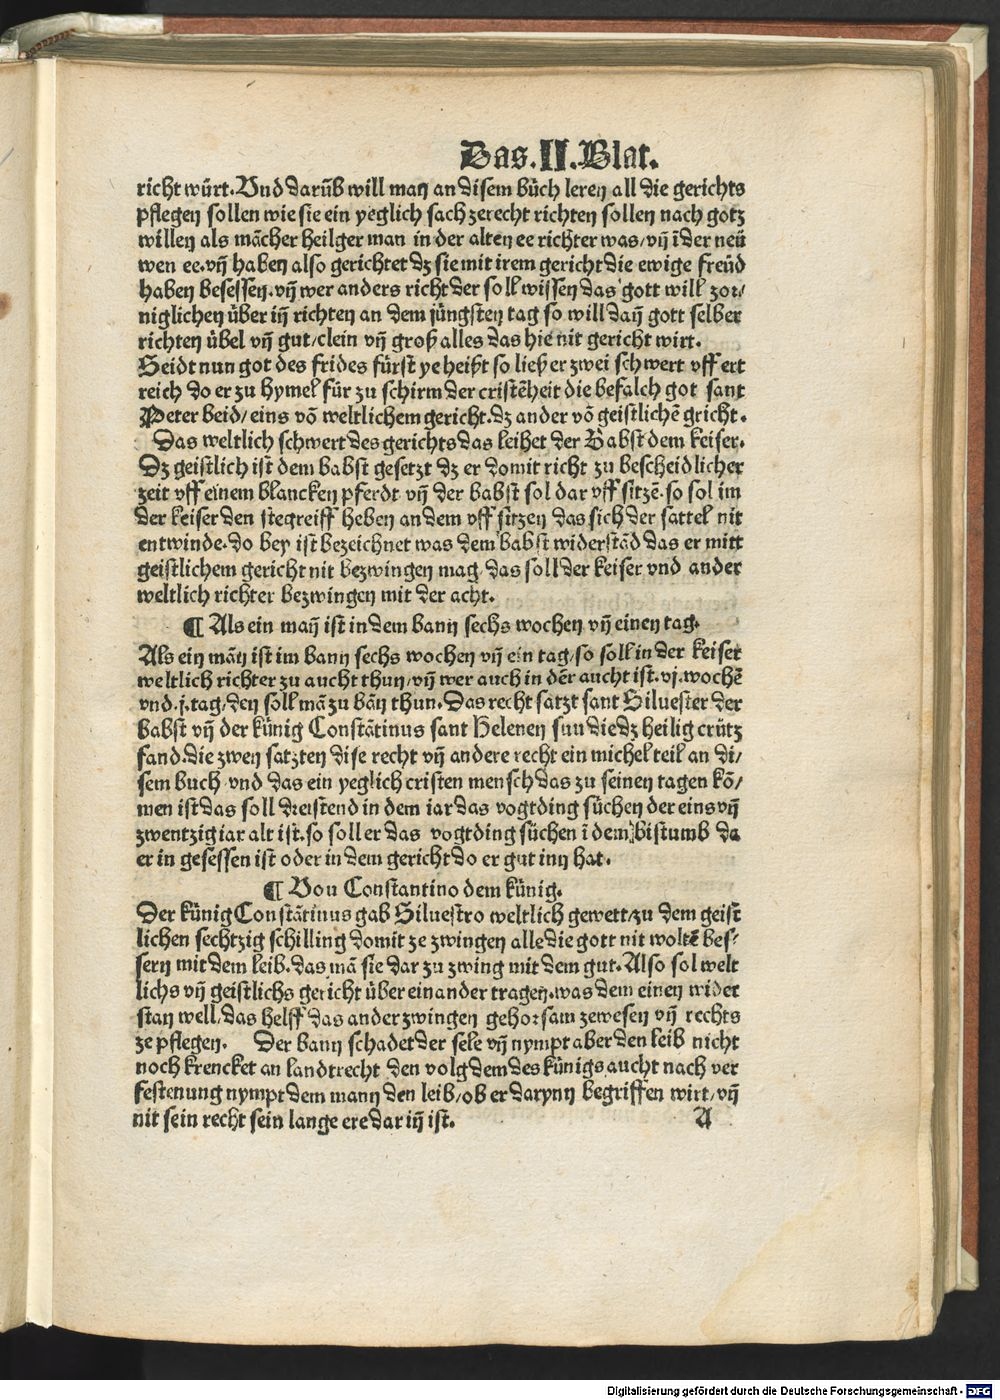 Das.II.Blat.
richt würt.Vnd darūb will man an disem bůch leren all die gerichts
pflegen sollen wie sie ein yeglich sach zerecht richten sollen nach gotz
willen als mācher heilger man in der alten ee richter was/vn̄ ī der neü
wen ee.vn̄ haben also gerichtet dz sie mit irem gericht die ewige freüd
haben besessen.vn̄ wer anders richt der soll wissen das gott will zor/
niglichen über in̄ richten an dem jüngsten tag so will dan̄ gott selber
richten übel vn̄ gut/clein vn̄ groß alles das hie nit gericht wirt.
Seidt nun got des frides fürst ye heißt so ließ er zwei schwert vff ert
reich do er zu hymel für zu schirm der cristēheit die befalch got sant
Peter beid/eins vō weltlichem gericht.dz ander vō geistlichē gricht.
Das weltlich schwert des gerichts das leihet der Babst dem keiser.
Dz geistlich ist dem babst gesetzt dz er domit richt zu bescheidlicher
zeit vff einem blancken pferdt vn̄ der babst sol dar vff sitzē.so sol im
der keiser den stegreiff heben an dem vff sitzen das sich der sattel nit
entwinde.do bey ist bezeichnet was dem babst widerstād das er mitt
geistlichem gericht nit bezwingen mag/das soll der keiser vnd ander
weltlich richter bezwingen mit der acht.
¶ Als ein man̄ ist in dem bann sechs wochen vn̄ einen tag.
Als ein mān ist im bann sechs wochen vn̄ ein tag/so soll in der keiser
weltlich richter zu aucht thun/vn̄ wer auch in dēr aucht ist.vj.wochē
vnd.j.tag/den soll mā zu bān thun.Das recht satzt sant Siluester der
babst vn̄ der künig Constātinus sant Helenen sun die dz heilig crütz
fand.die zwen satzten dise recht vn̄ andere recht ein michel teil an di/
sem buch vnd das ein yeglich cristen mensch das zu seinen tagen kō/
men ist das soll dreistend in dem iar das vogtding sůchen der eins vn̄
zwentzig iar alt ist.so soll er das vogtding sůchen ī dem bistumb da
er in gesessen ist oder in dem gericht do er gut inn hat.
¶ Von Constantino dem künig.
Der künig Constātinus gab Siluestro weltlich gewett/zu dem geist
lichen sechtzig schilling domit ze zwingen alle die gott nit woltē bes/
sern mit dem leib.das mā sie dar zu zwing mit dem gut.Also sol welt
lichs vn̄ geistlichs gericht über einander tragen.was dem einen wider
stan well/das helff das ander zwingen gehorsam zewesen vn̄ rechts
ze pflegen. Der bann schadet der sele vn̄ nympt aber den leib nicht
noch krencket an landtrecht den volg dem des künigs aucht nach ver
festenung nympt dem mann den leib/ob er darynn begriffen wirt/vn̄
nit sein recht sein lange ere dar in̄ ist. A
Digitalisierung gefördert durch die Deutsche Forschungsgemeinschaft - DFG